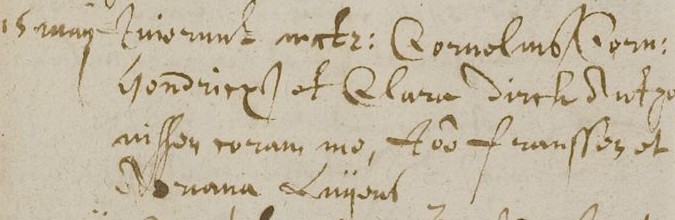 15 maij Inierunt mctr: Cornelius Corn:
Hendricx et Clara Dirck
nissen coram me, franssen et
Adriana Luijcas